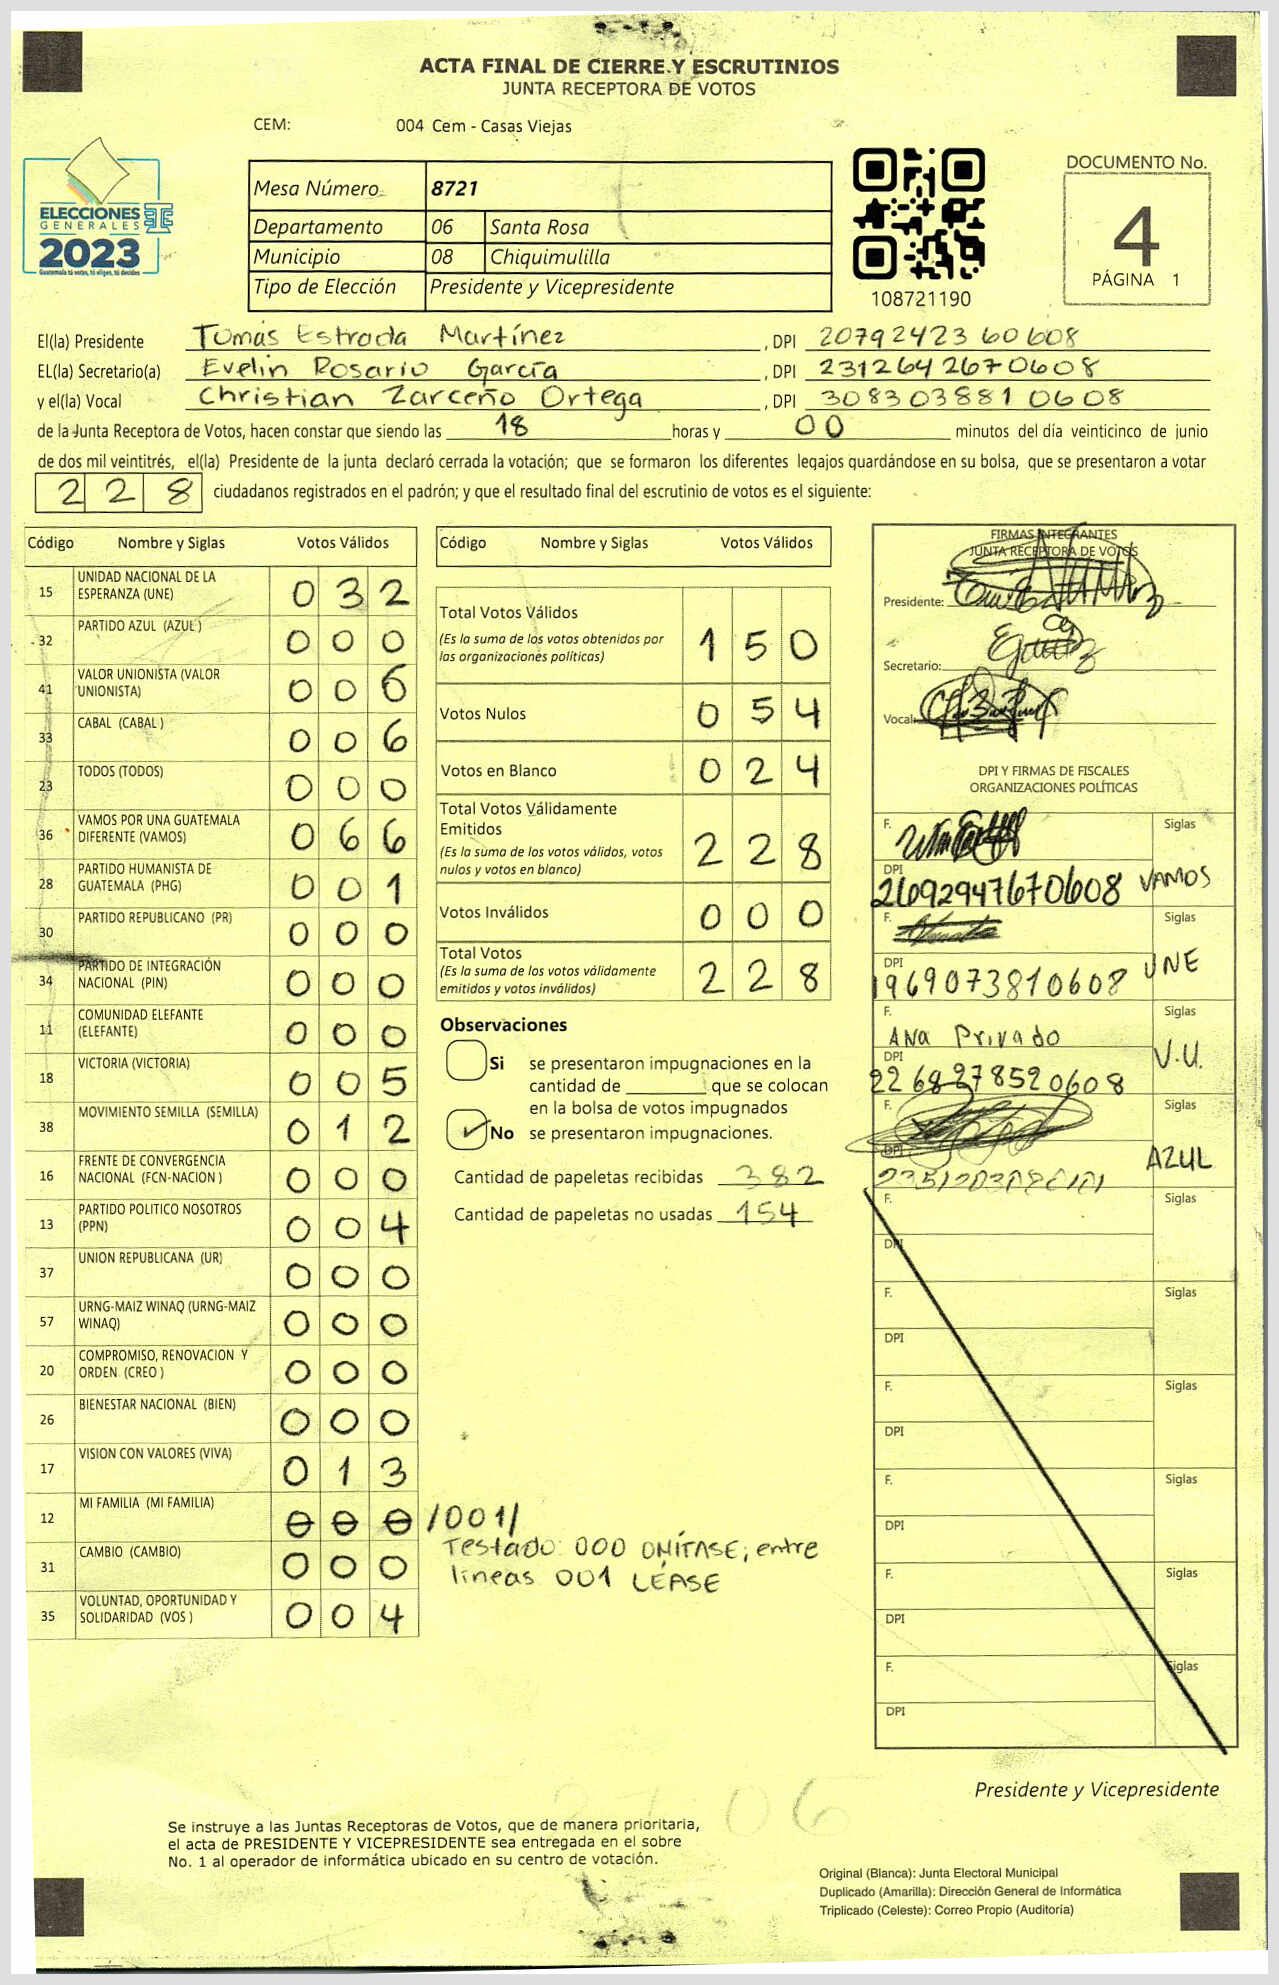 ACTA FINAL DE CIERRE Y ESCRUTINIOS
JUNTA RECEPTORA DE VOTOS
CEM: 004 Cem - Casas Viejas
ELECCIONES
GENERALES
2023
Guatemala tú votas, tú eliges, tú decides
Mesa Número 8721
Departamento 06 Santa Rosa
Municipio 08 Chiquimulilla
Tipo de Elección Presidente y Vicepresidente
108721190
DOCUMENTO No.
4
PÁGINA 1
El(la) Presidente Tomás Estrada Martínez , DPI 2079242360608
EL(la) Secretario(a) Evelin Rosario García , DPI 2312642670608
y el(la) Vocal Christian Zarceño Ortega , DPI 3083038810608
de la Junta Receptora de Votos, hacen constar que siendo las 18 horas y 00 minutos del día veinticinco de junio
de dos mil veintitrés, el(la) Presidente de la junta declaró cerrada la votación; que se formaron los diferentes legajos guardándose en su bolsa, que se presentaron a votar
228 ciudadanos registrados en el padrón; y que el resultado final del escrutinio de votos es el siguiente:
Código Nombre y Siglas Votos Válidos
15 UNIDAD NACIONAL DE LA ESPERANZA (UNE) 032
32 PARTIDO AZUL (AZUL ) 000
41 VALOR UNIONISTA (VALOR UNIONISTA) 006
33 CABAL (CABAL ) 006
23 TODOS (TODOS) 000
36 VAMOS POR UNA GUATEMALA DIFERENTE (VAMOS) 066
28 PARTIDO HUMANISTA DE GUATEMALA (PHG) 001
30 PARTIDO REPUBLICANO (PR) 000
34 PARTIDO DE INTEGRACIÓN NACIONAL (PIN) 000
11 COMUNIDAD ELEFANTE (ELEFANTE) 000
18 VICTORIA (VICTORIA) 005
38 MOVIMIENTO SEMILLA (SEMILLA) 012
16 FRENTE DE CONVERGENCIA NACIONAL (FCN-NACION ) 000
13 PARTIDO POLITICO NOSOTROS (PPN) 004
37 UNION REPUBLICANA (UR) 000
57 URNG-MAIZ WINAQ (URNG-MAIZ WINAQ) 000
20 COMPROMISO, RENOVACION Y ORDEN (CREO ) 000
26 BIENESTAR NACIONAL (BIEN) 000
17 VISION CON VALORES (VIVA) 013
12 MI FAMILIA (MI FAMILIA) 000 /001/
31 CAMBIO (CAMBIO) 000
35 VOLUNTAD, OPORTUNIDAD Y SOLIDARIDAD (VOS ) 004
Testado: 000 OMÍTASE; entre
líneas 001 LÉASE
Código Nombre y Siglas Votos Válidos
Total Votos Válidos 150
(Es la suma de los votos obtenidos por
las organizaciones políticas)
Votos Nulos 054
Votos en Blanco 024
Total Votos Válidamente
Emitidos 228
(Es la suma de los votos válidos, votos
nulos y votos en blanco)
Votos Inválidos 000
Total Votos 228
(Es la suma de los votos válidamente
emitidos y votos inválidos)
Observaciones
Si se presentaron impugnaciones en la
cantidad de que se colocan
en la bolsa de votos impugnados
No se presentaron impugnaciones.
Cantidad de papeletas recibidas 382
Cantidad de papeletas no usadas 154
FIRMAS INTEGRANTES
JUNTA RECEPTORA DE VOTOS
Presidente:
Secretario:
Vocal:
DPI Y FIRMAS DE FISCALES
ORGANIZACIONES POLÍTICAS
F. Siglas
DPI
2692947670608 VAMOS
F. Siglas
DPI
1969073810608 UNE
F. Siglas
Ana Privado
DPI V.U.
2268278520608
F. Siglas
DPI
AZUL
F. Siglas
DPI
F. Siglas
DPI
F. Siglas
DPI
F. Siglas
DPI
F. Siglas
DPI
F. Siglas
DPI
Presidente y Vicepresidente
Se instruye a las Juntas Receptoras de Votos, que de manera prioritaria,
el acta de PRESIDENTE Y VICEPRESIDENTE sea entregada en el sobre
No. 1 al operador de informática ubicado en su centro de votación.
Original (Blanca): Junta Electoral Municipal
Duplicado (Amarilla): Dirección General de Informática
Triplicado (Celeste): Correo Propio (Auditoría)